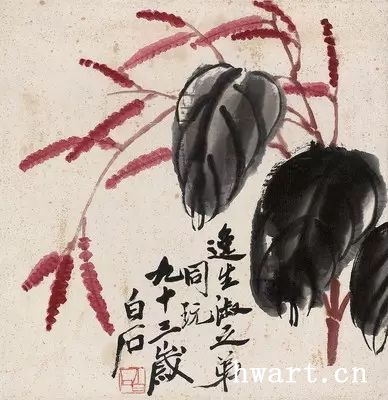 逸生淑弟
同玩
九十三歲
白石
hwart.cn